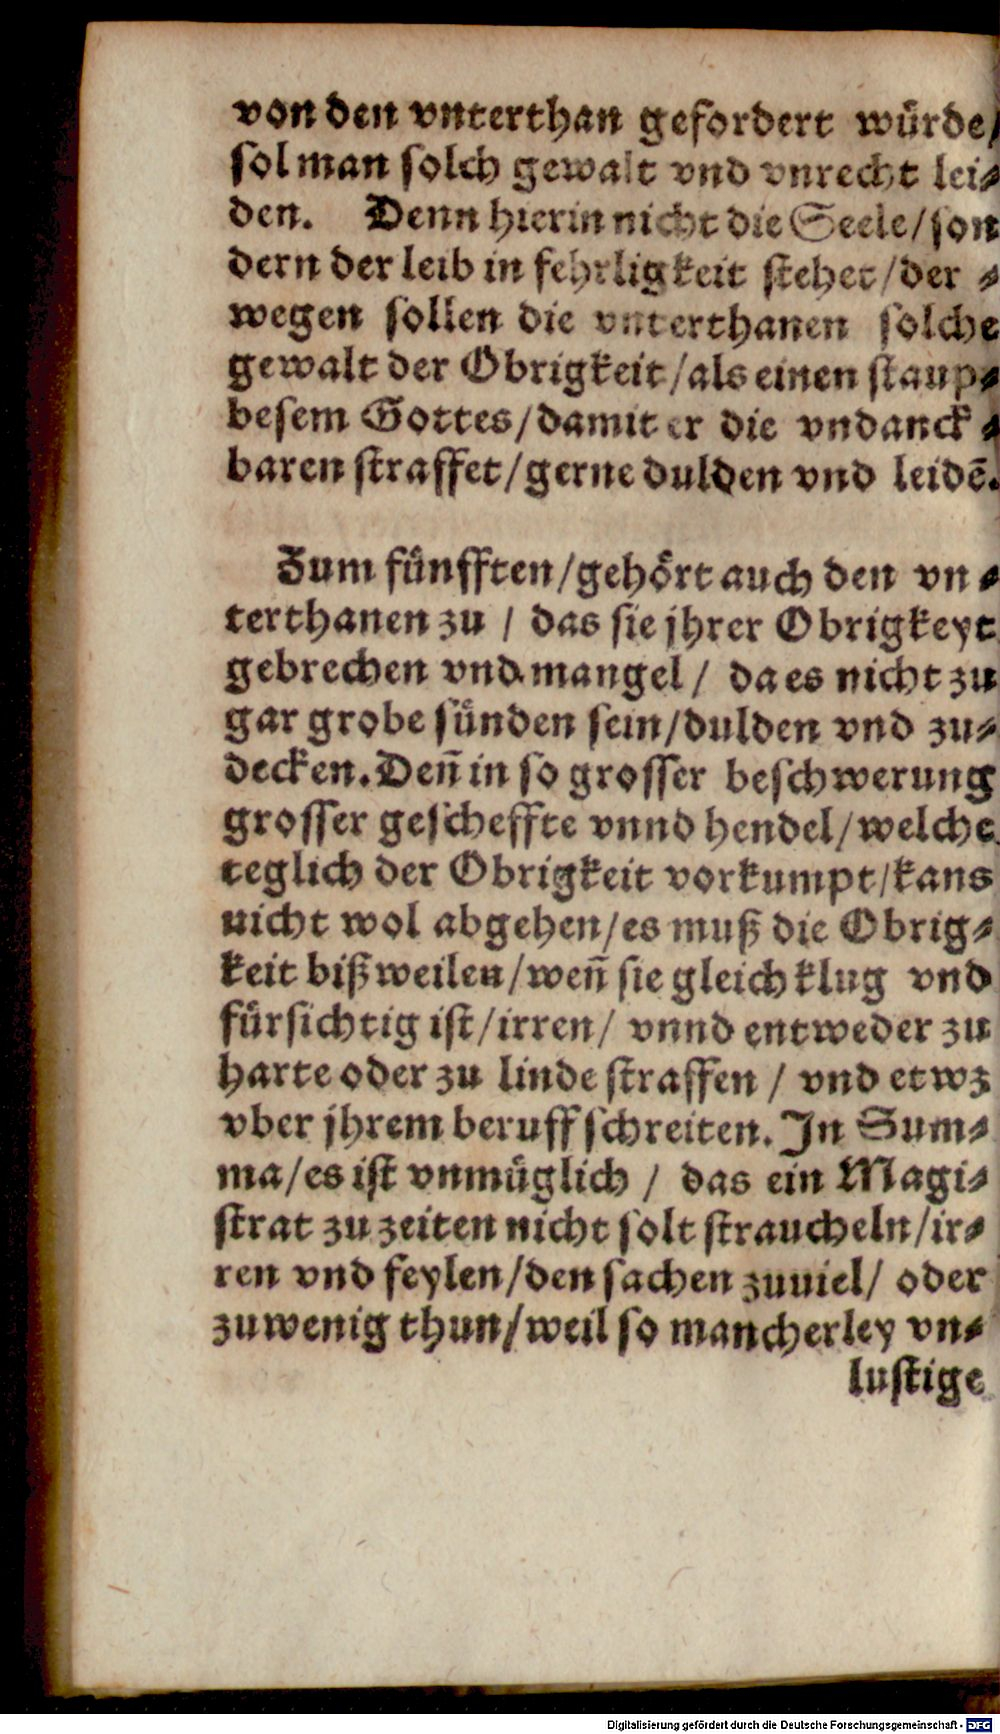 von den vnterthan gefordert würde/
sol man solch gewalt vnd vnrecht lei⸗
den. Denn hierin nicht die Seele/son
dern der leib in fehrligkeit stehet/der ⸗
wegen sollen die vnterthanen solche
gewalt der Obrigkeit/als einen staup⸗
besem Gottes/damit er die vndanck ⸗
baren straffet/gerne dulden vnd leidē.
Zum fünfften/gehört auch den vn ⸗
terthanen zu / das sie jhrer Obrigkeyt
gebrechen vnd mangel/ da es nicht zu
gar grobe sünden sein/dulden vnd zu⸗
decken. Deñ in so grosser beschwerung
grosser gescheffte vnnd hendel/welche
teglich der Obrigkeit vorkumpt/kans
nicht wol abgehen/es muß die Obrig⸗
keit bißweilen/weñ sie gleich klug vnd
fürsichtig ist/irren/ vnnd entweder zu
harte oder zu linde straffen / vnd etwz
vber jhrem beruff schreiten. In Sum⸗
ma/es ist vnmüglich / das ein Magi⸗
strat zu zeiten nicht solt straucheln/ir⸗
ren vnd feylen/den sachen zuuiel/ oder
zuwenig thun/weil so mancherley vn⸗
lustige
Digitalisierung gefördert durch die Deutsche Forschungsgemeinschaft - DFG